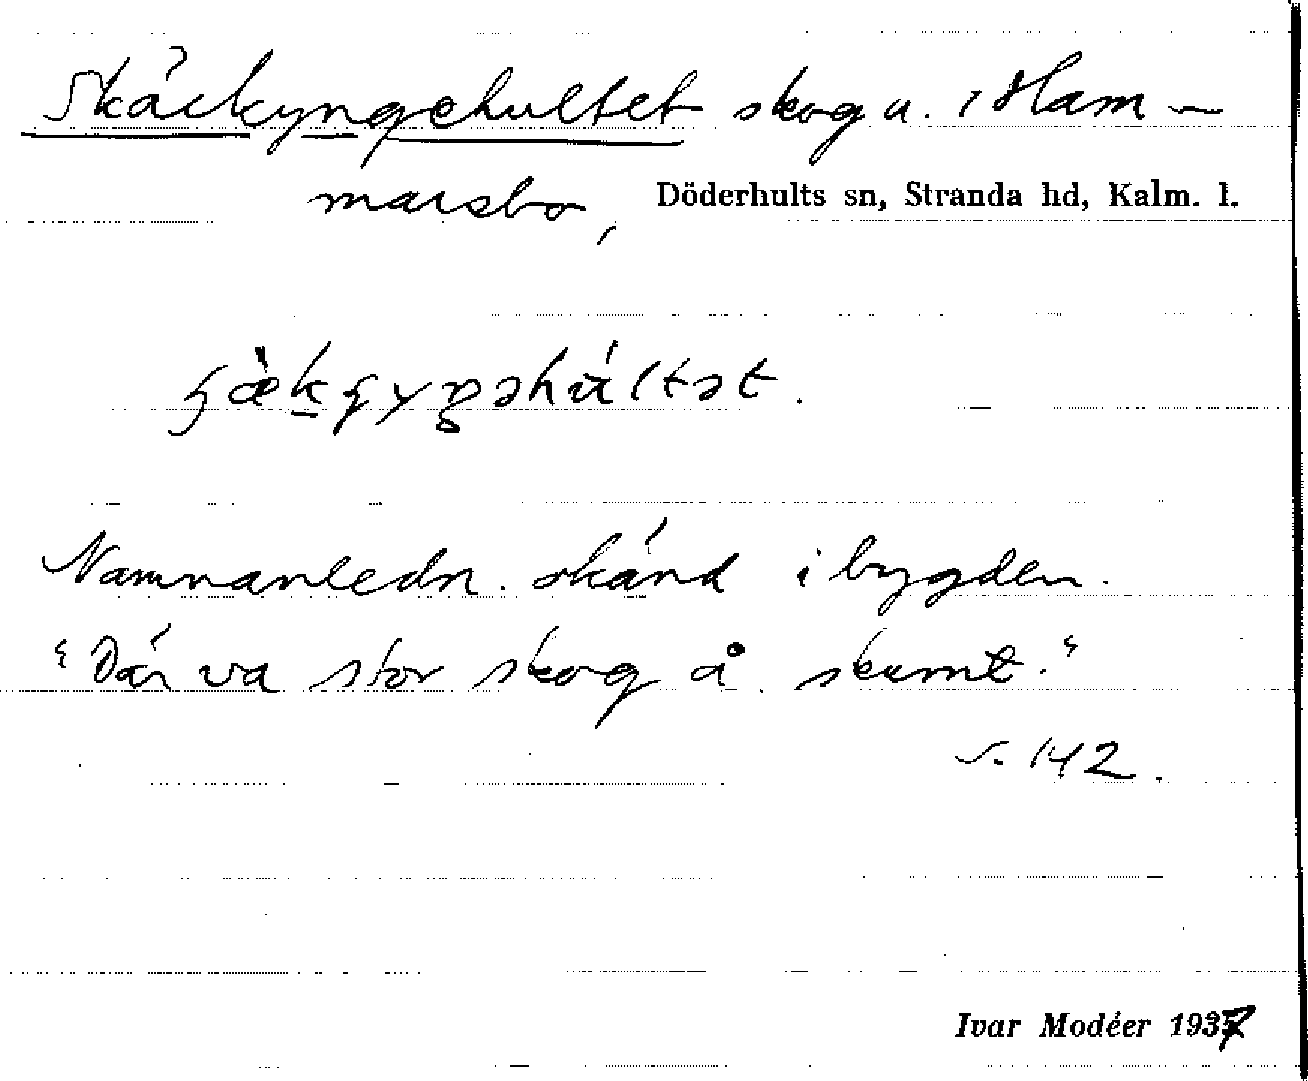 Skäckyngehultet skog u. i Ham-
marsbo, Döderhults sn, Stranda hd, Kalm. l.
Namnanledn. okänd i bygden.
"Där va stor skog å skumt."
s. 142.
Ivar Modéer 1937